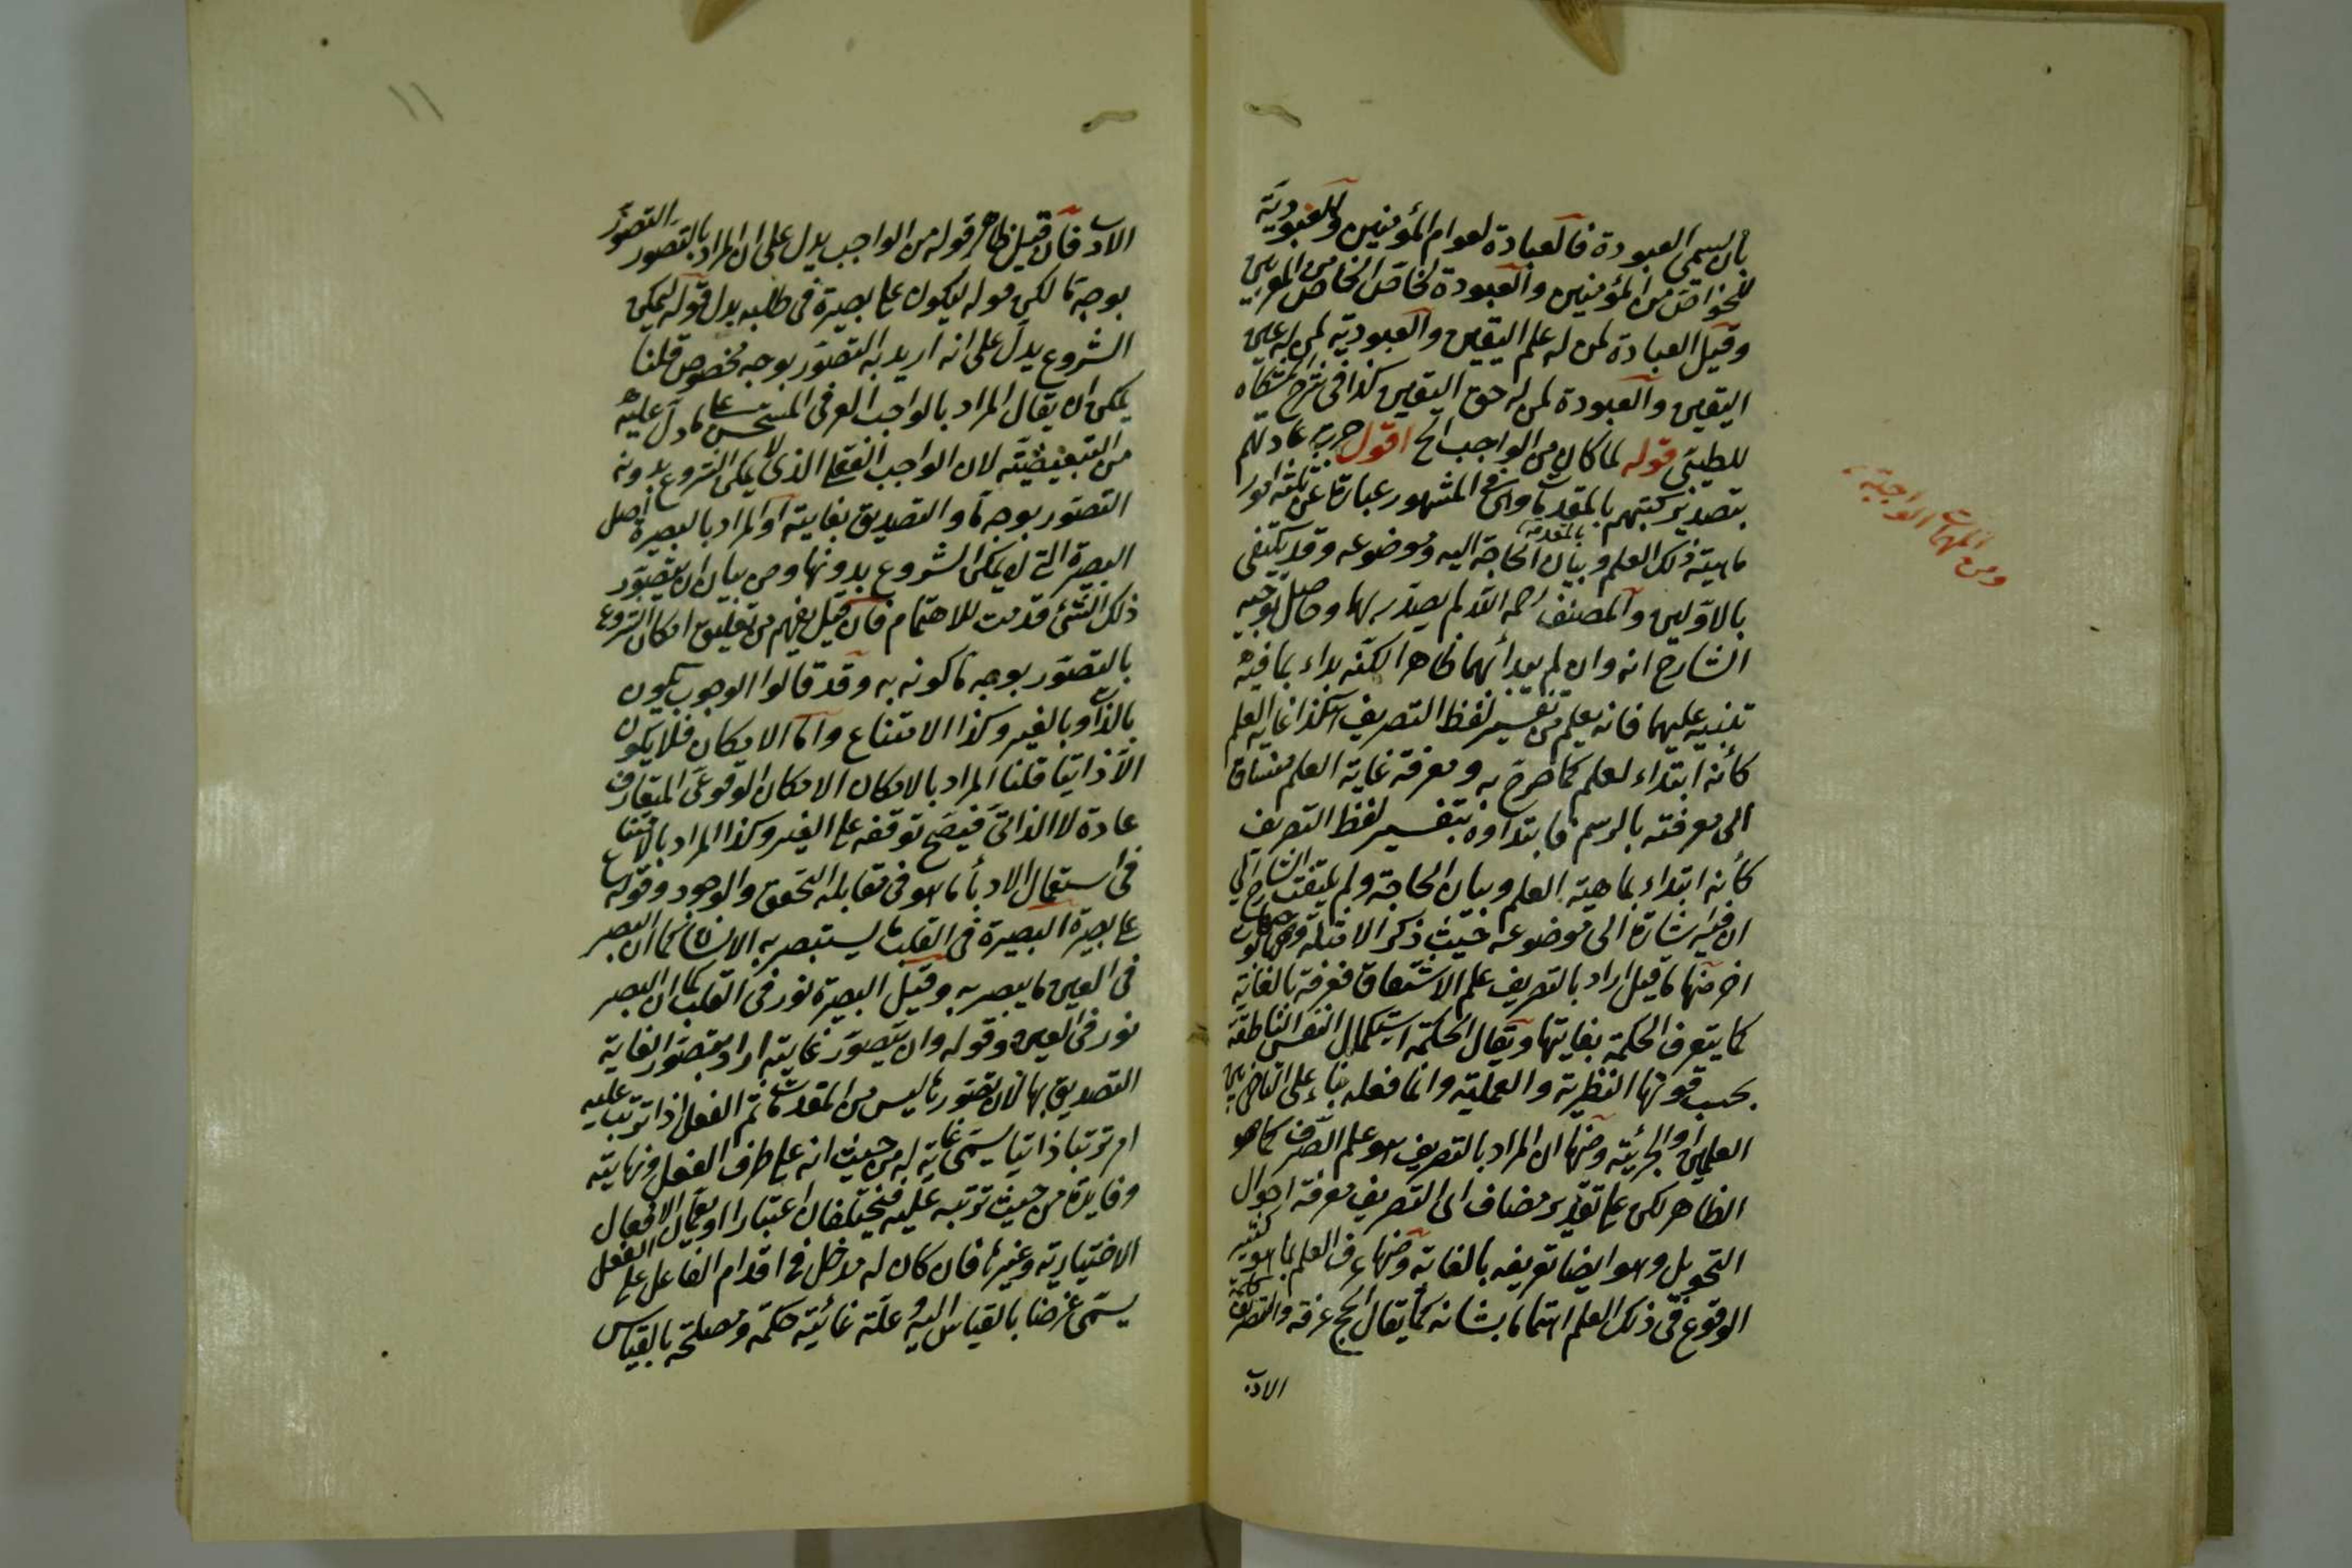 بأن يسمى العبودة فالعبادة لعوام المؤمنين والعبودية
للخواص من المؤمنين والعبودة لخاص الخاص من المقربين
وقيل العبادة لمن له علم اليقين والعبودية لمن له عين
اليقين والعبودة لمن له حق اليقين كذا فى شرح المشكاة
للطيبى قوله لما كان من الواجب الخ اقول جرت عادتهم
بتصدير كتبهم بالمقدمات وهى فى المشهور عبارة عن ثلثة امور
بالمقدمة
ماهية ذلك العلم وبيان الحاجة اليه وموضوعه وقد يكتفى
بالاولين والمصنف رحمه الله لم يصدر بها وحاصل توجيه
الشارح انه وان لم يبدأ بهما ظاهرا لكنه بداء بما فيه
تنبيه عليهما فانه يعلم من تفسير لفظ التصريف هكذا غاية العلم
كأنه ابتداء لعلم كما صرح به ومعرفة غاية العلم منساق
الى معرفته بالرسم فابتداوه بتفسير لفظ التصريف
كأنه ابتداء بماهية العلم وبيان الحاجة ولم يلتفت الشارح الى
ان فيه اشارة الى موضوعه حيث ذكر الامثلة
اخر منها ما قيل اراد بالتصريف علم الاشتقاق فعرفه بالغاية
كما يتعرف الحكمة بغايتها ويقال الحكمة استكمال النفس الناطقة
بحسب قوتها النظرية والعملية وانما فعله بناء على
العلمين والجزئية ومنها ان المراد بالتصريف هو علم الصرف كما هو
الظاهر لكن على تقدير مضاف الى التصريف معرفة احوال
التحويل وهو ايضا تعريفه بالغاية ومنها عرف العلم بما هو كثير
الوقوع فى ذلك العلم اهتماما بشانه كما يقال الحج عرفة والتصريف
الاب
ومن المهمات الواجبة
١١
الاب فان قيل ظاهر قوله من الواجب يدل على ان المراد بالتصور التصور
بوجه ما لكن قوله ليكون على بصيرة فى طلبه بدل قوله ليمكن
الشروع يدل على انه اريد به التصور بوجه مخصوص قلنا
يمكن ان يقال المراد بالواجب العرفى المستحسن على ما دل عليه
من التبعيضية لان الواجب العقلى الذى لا يمكن الشروع بدونه
التصور بوجه ما والتصديق بغاية او المراد بالبصيرة اصل
البصيرة التى لا يمكن الشروع بدونها ومن بيان ان يتصور
ذلك الشئ قدمت للاهتمام فان قيل يفهم من تعليق امكان الشروع
بالتصور بوجه ما كونه به وقد قالوا الوجوب يكون
بالذات وبالغير وكذا الامتناع واما الامكان فلا يكون
الا ذاتيا قلنا المراد بالامكان الامكان الوقوعى المتعارف
عادة لا الذاتى فيصح توقفه على الغير وكذا المراد بالامتناع
فى استعمال الادباء ما هو فى مقابلة التحقق والوجود وقوله
على بصيرة البصيرة فى القلب ما يستبصر به الانسان كما ان البصر
فى العين ما يبصر به وقيل البصيرة نور فى القلب كما ان البصر
نور فى العين وقوله وان يتصور غايته اراد بتصور الغاية
التصديق بها لان تصورها ليس من المقدمات ثم الفعل اذا ترتب عليه
امر ترتبا ذاتيا يسمى غاية له من حيث انه على طرف الفعل ونهايته
وفايدة من حيث ترتبه عليه فيختلفان اعتبارا ويعمان الافعال
الاختيارية وغيرها فان كان له مدخل فى اقدام الفاعل على الفعل
يسمى غرضا بالقياس اليه وعلة غائية حكمة ومصلحة بالقياس